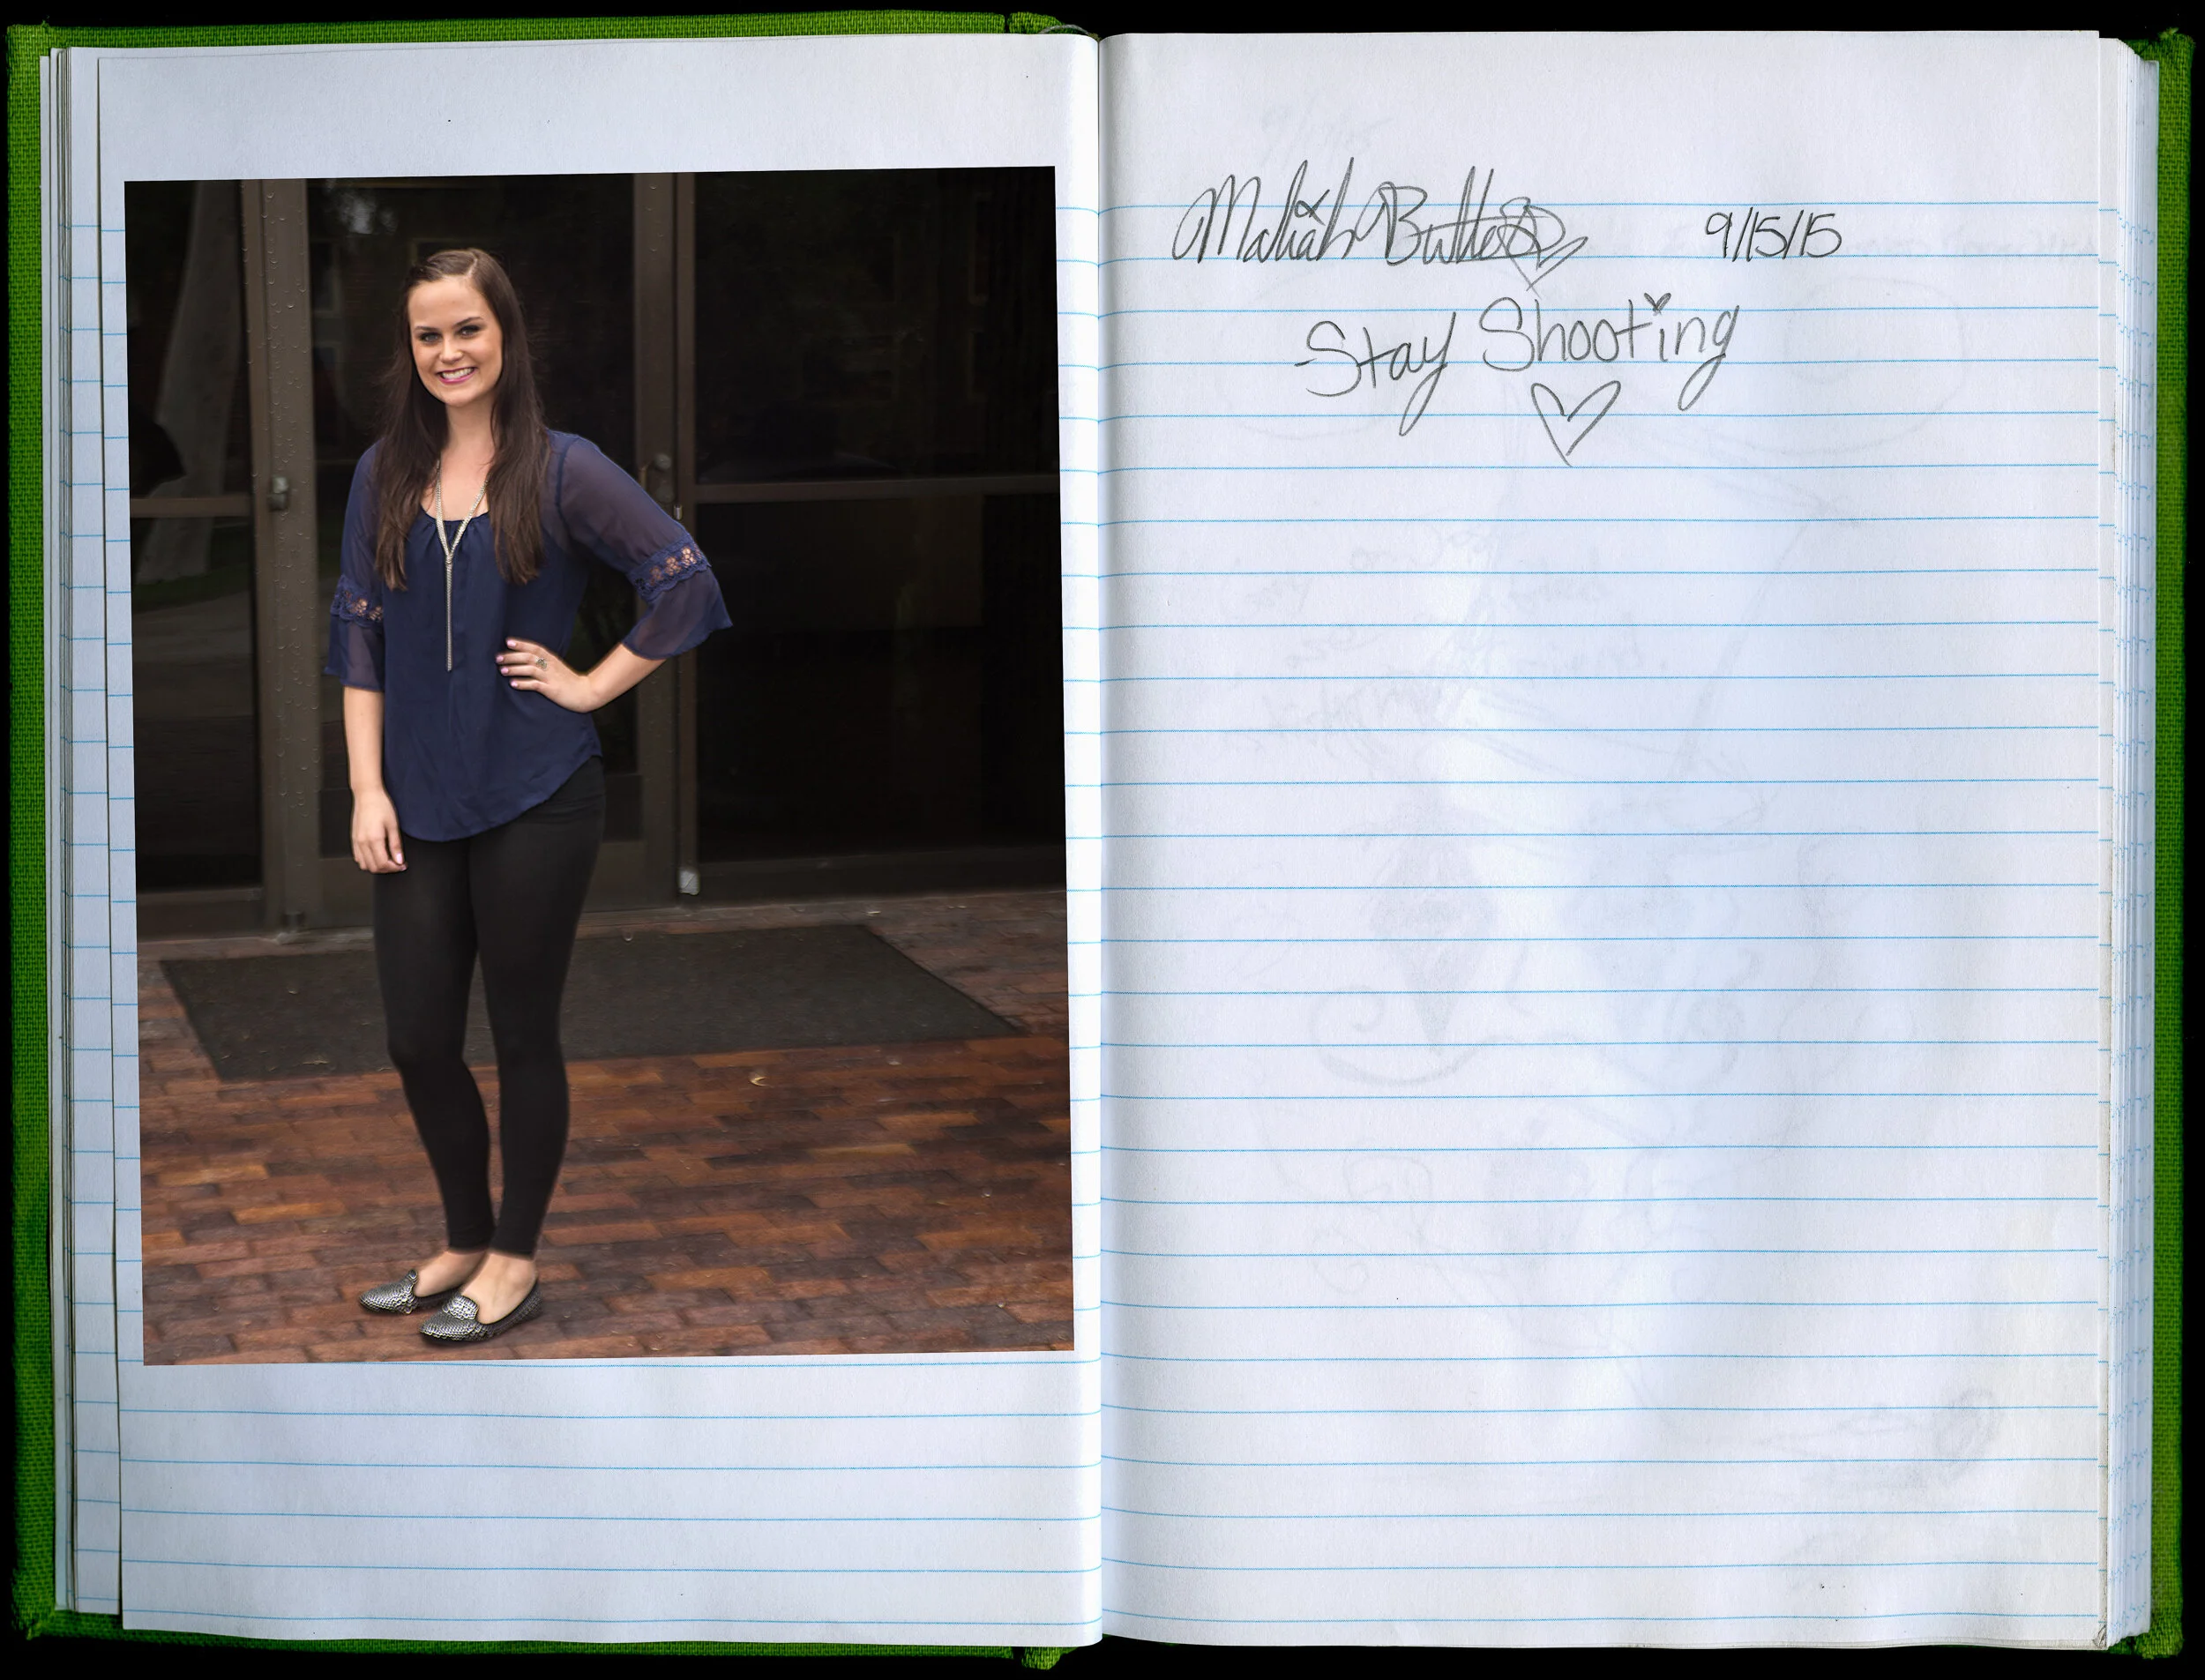 Maliah Butler 9/15/15
Stay Shooting